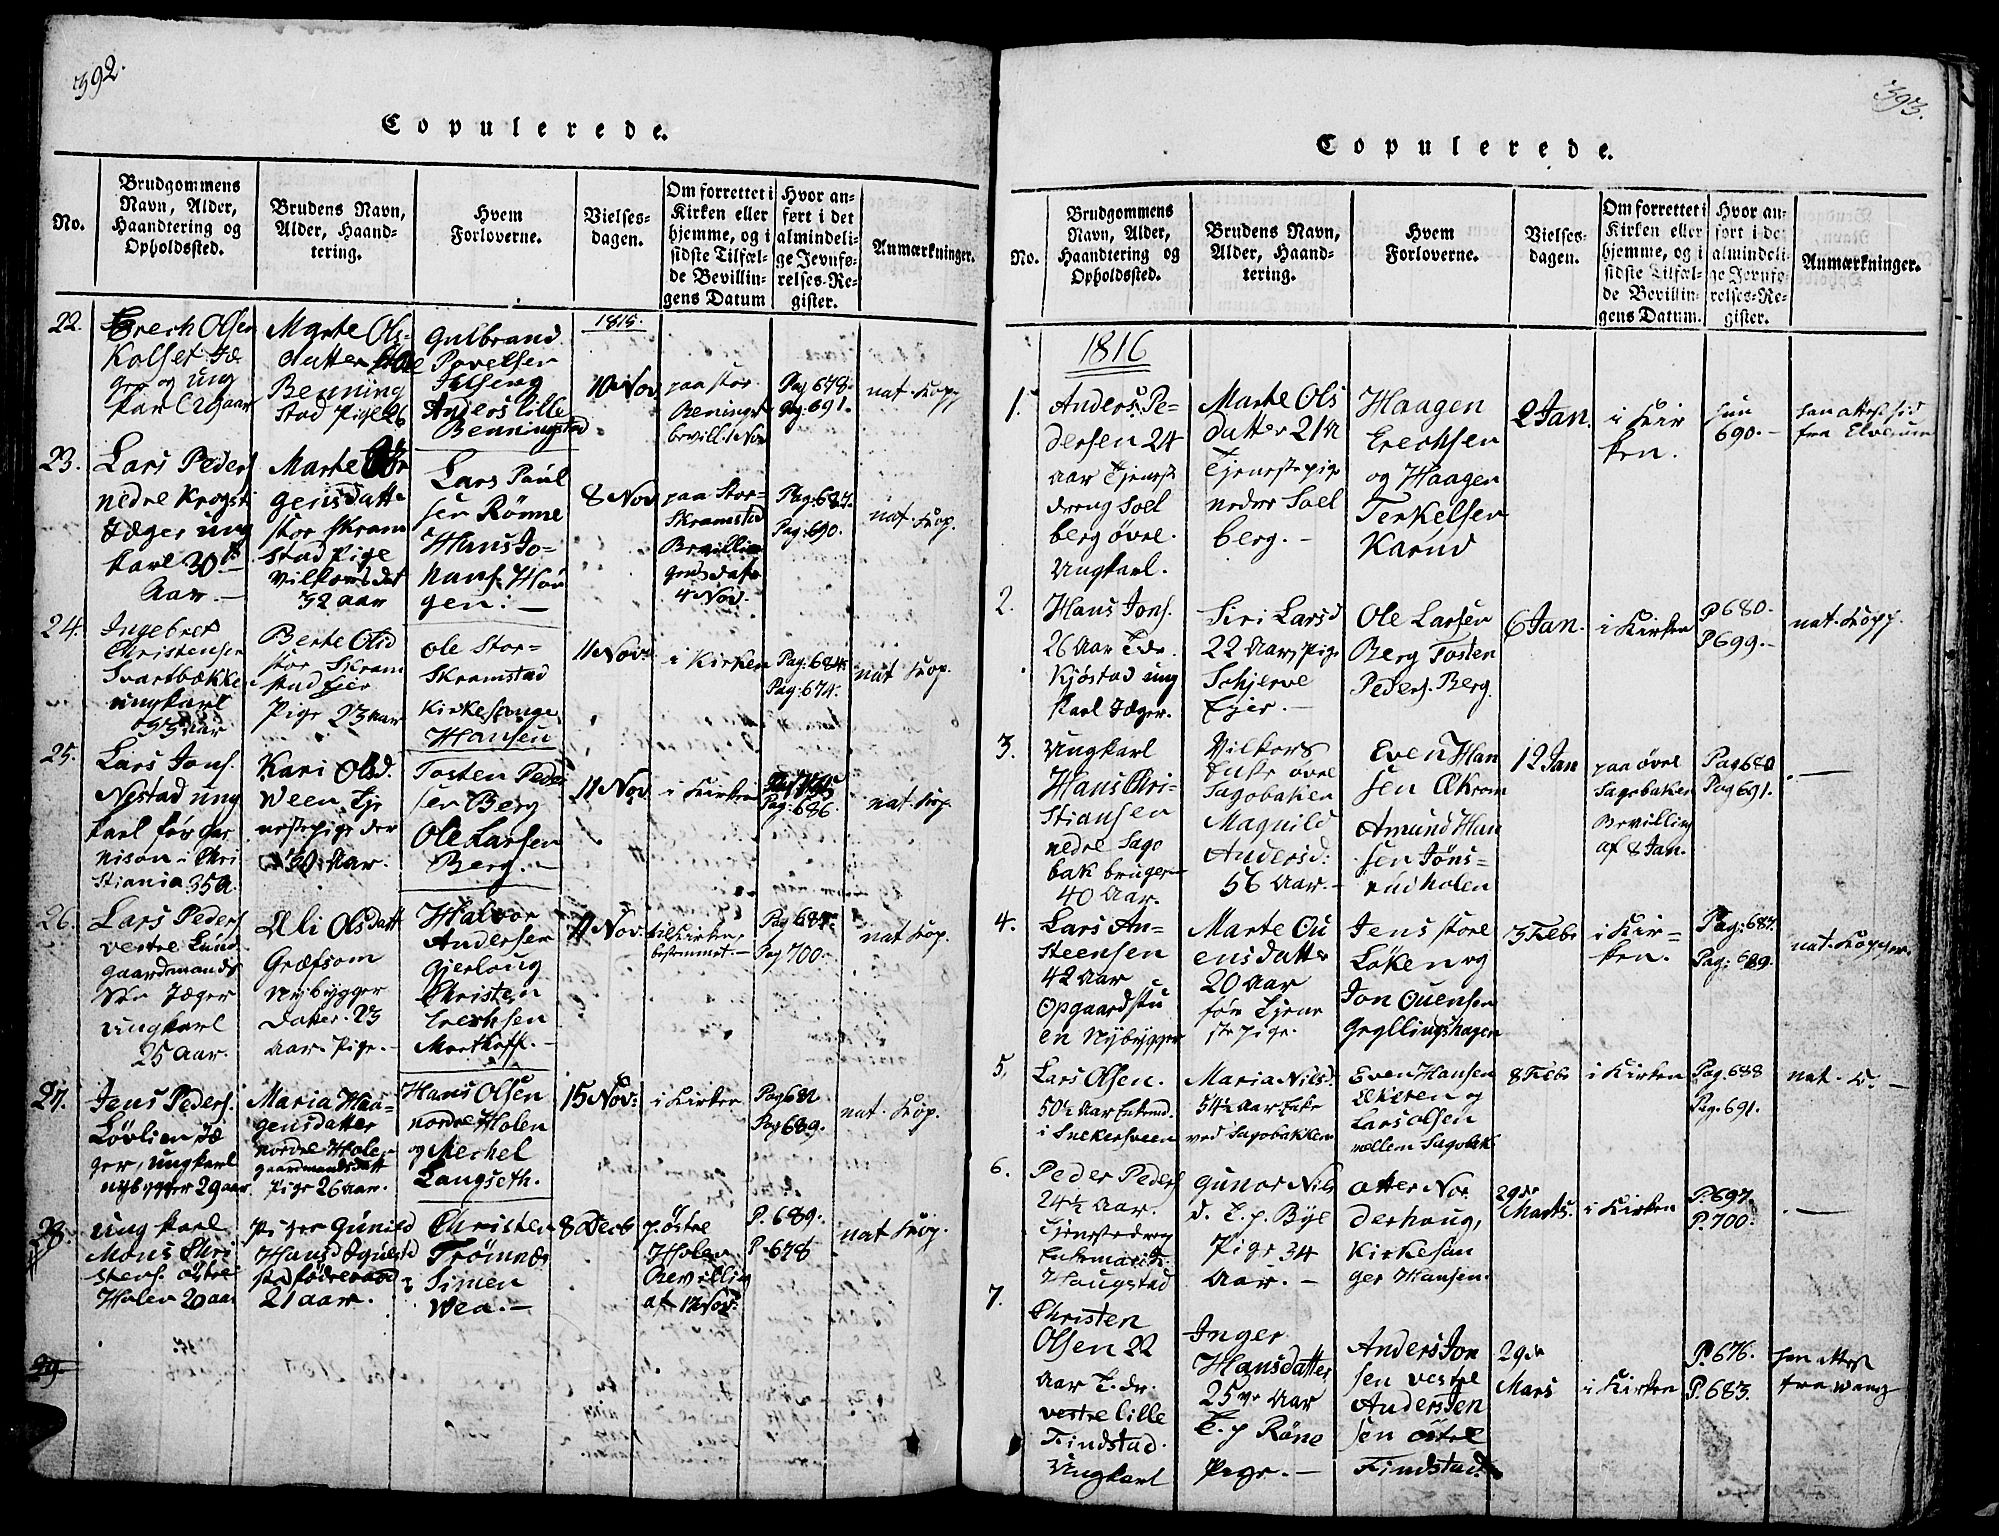 392.
Copulerede.
No.
Brudgommens
Navn, Alder,
Haandtering og
Opholdssted.
Brudens Navn,
Alder, Haand-
tering.
Hvem
Forloverne.
Vielses-
dagen.
Om forrettet i
Kirken eller
hjemme, og i
sidste Tilfæl-
de Bevillin-
gens Datum
Hvor an-
ført i det
almindeli-
ge Jevnfø-
relses-Re-
gister.
Anmærkninger.
1815.
22.
Erech Olsen
Kolset Jæ
ger og ung
karl 29 aar
Marte Ols-
datter
Benning
stad Pige 26
Gulbrand
Povelsen
Ilseng
Anders Lille
Benningstad
10 Nov
paa stor
Beningst
bevill: Nov
Pag 678.
Pag: 691.
nat. Kopp
23.
Lars Peders
nedre Krogsti
Jæger ung
karl 30
Aar.
Marte Jør
gensdatte
stor Skram
stad Pige
Vilkorsdat
32 aar
Lars Poul
sen Rönne
Hans Jo-
hans. Hou
gen.
8 Nov
paa Stor-
Skramstad
Bevillin
gens dato
4 Nov.
Pag: 687.
Pag: 690.
nat. Kop.
24.
Ingebret
Christensen
Svartbække
ungkarl
Berte Olsd
stor Skram
stad Eier
Pige 23 aar
Ole Stor-
Skramstad
Kirkesanger
Hansen
11 Nov:
i Kirken
Pag: 684.
Pag: 674.
nat Kop.
25.
Lars Jons.
Nestad ung
karl før Gar
nison i Chri
stiania 35 A.
Kari Olsd.
Ween, Tje
nestepige der
30 Aar.
Tosten Peder
sen Berg
Ole Larsen
Berg.
11 Nov
i Kirken
Pag: 686.
nat. Kop.
26.
Lars Peders
vestre Lund
gaardmands
Søn Jæger
ungkarl
25 aar.
Eli Olsdatt
Græfsom
Nybygger
Datter. 23
aar. Pige.
Halvor
Andersen
Gjerloug
Christen
Erechsen
11 Nov.
til Kirken
bestemmet.
Pag 684.
Pag 700.
nat Kop.
27.
Jens Peders.
Lövlien Jæ
ger, ungkarl
nybygger 29 aar
Maria Haa-
gensdatter
nordre Holen
gaardmandsdatt
Pige 26 aar.
Hans Olsen
nordre Holen
og Mechel
Langseth.
15 Nov:
i Kirken
Pag 682
Pag 689.
nat. Kop.
28.
Ungkarl
Mons Chri
stens. østre
Holen 20 aar
Piger Gunild
Hansd
21 aar.
Christen
Trömnæs
Simen
Wea.
8 Decb
p östre
Holen
Bevilling
af 12 Nov:
P. 689.
P. 678
nat Kop.
29.
393.
Copulerede.
No.
Brudgommens
Navn, Alder,
Haandtering og
Opholdssted.
Brudens Navn,
Alder, Haand-
tering.
Hvem
Forloverne.
Vielses-
dagen.
Om forrettet i
Kirken eller
hjemme, og i
sidste Tilfæl-
de Bevillin-
gens Datum.
Hvor an-
ført i det
almindeli-
ge Jevnfø-
relses-Re-
gister.
Anmærkninger.
1816
1.
Anders Pe-
dersen 24
aar Tjenest
dreng Soel
berg øvre.
Ungkarl.
Marte Ols
datter 21 A
Tjenestepige
nedre Soel
berg.
Haagen
Erechsen
og Haagen
Terkelsen
Karud
2 Jan.
i Kir
ken.
hun
690.
han attest
fra Elverum
2.
Hans Jons.
26 Aar T.dr.
Kjöstad ung
karl Jæger.
Siri Larsd
22 Aar, Pige
Schjerve
Ejer.
Ole Larsen
Berg Tosten
Peders. Berg.
6 Jan.
i Kirken
P. 680.
P 699.
nat. Kopp.
3.
Ungkarl
Hans Chri-
stiansen
nedre Sago
bak bruger
40 Aar.
Vilkors
Enke øvre
Sagobaken
Magnild
Andersd:
56 Aar.
Even Han
sen Ækren
Amund Han
sen Jöns-
rudholen
12 Jan
paa øvre
Sagobaken
Bevilling
af 8 Jan.
Pag 680
Pag 691.
4.
Lars An-
steensen
42 Aar
Opgaardstu
en Nybygger
Marte Ou
ensdatter
20 Aar
før Tjene
stepige.
Jens store
Løken og
Jon Ouensen
Gryllingshagen
3 Febr
i Kir-
ken.
Pag: 687.
Pag: 689.
nat. Kopper.
5.
Lars Olsen.
50½ Aar Enkemd.
i Snekersveen
Maria Nilsd.
54½ Aar Enke
ved Sagobakken
Even Hansen
Ækren og
Lars Olsen
mellem Sagobak
8 Febr
i Kirken
Pag. 688
Pag. 691.
nat. K.
6.
Peder Peders
24½ Aar.
Tjenestedreng
Haugstad
Gunor Nils
d. T.p. Bye
Pige 34
Aar.
Otter Nor
derhoug,
Kirkesan
ger Hansen.
29de
Marts.
i Kirken
P. 697.
P. 700.
7.
Christen
Olsen 22
Aar T. dr.
vestre lille
Findstad.
Ungkarl
Inger
Hansdatter
25 Aar
T.p Röne
Pige.
Anders Jon
sen vestre
Anders Jen
sen östre
Findstad.
29de
Mars
i Kirken
P. 676.
P. 683.
han attest
fra Wang